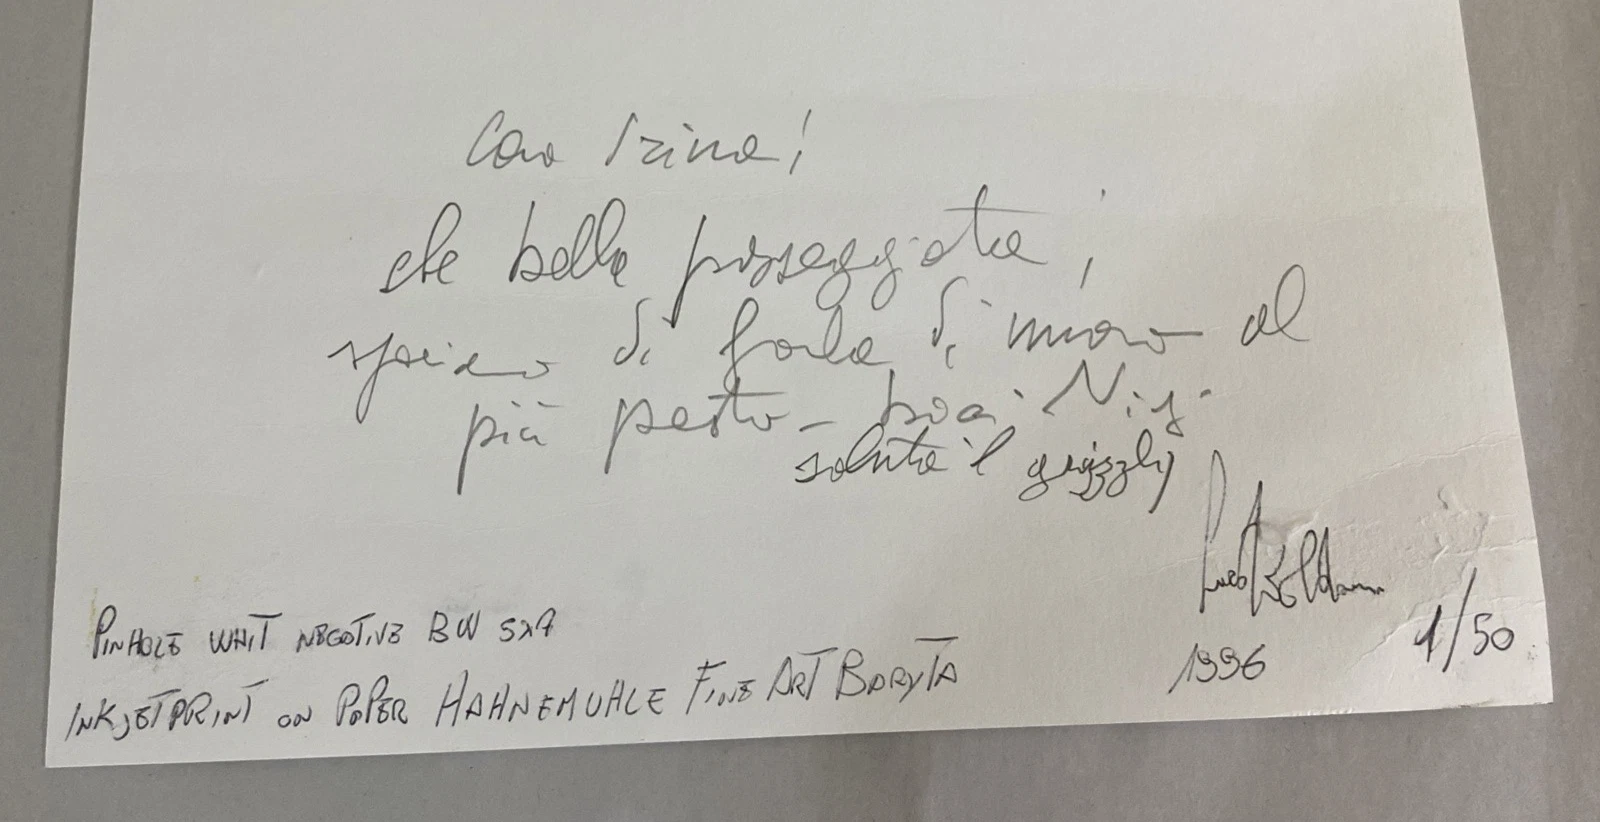 Cara Irina!
che bella passeggiata,
spero di farla di nuovo al
più presto - baci
saluta il grizzly
PINHOLE WHIT NEGATIVE BW 5x7
INKJETPRINT ON PAPER HAHNEMUHLE FINE ART BARYTA
1996
1/50